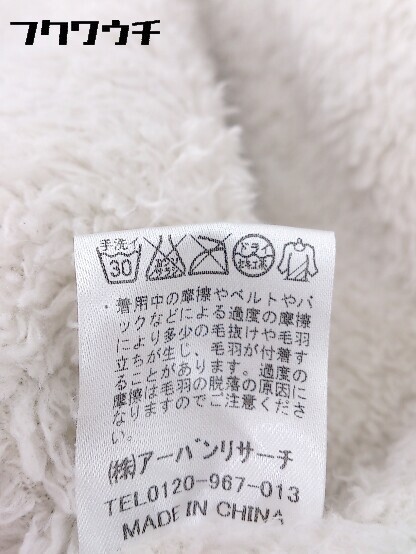 フクワウチ
手洗イ
30
ドライ
・着用中の摩擦やベルトやバ
ックなどによる過度の摩擦
により多少の毛抜けや毛羽
立ちが生じ、毛羽が付着す
ることがあります。過度の
摩擦は毛羽の脱落の原因に
なりますのでご注意くださ
い。
(株)アーバンリサーチ
TEL0120-967-013
MADE IN CHINA